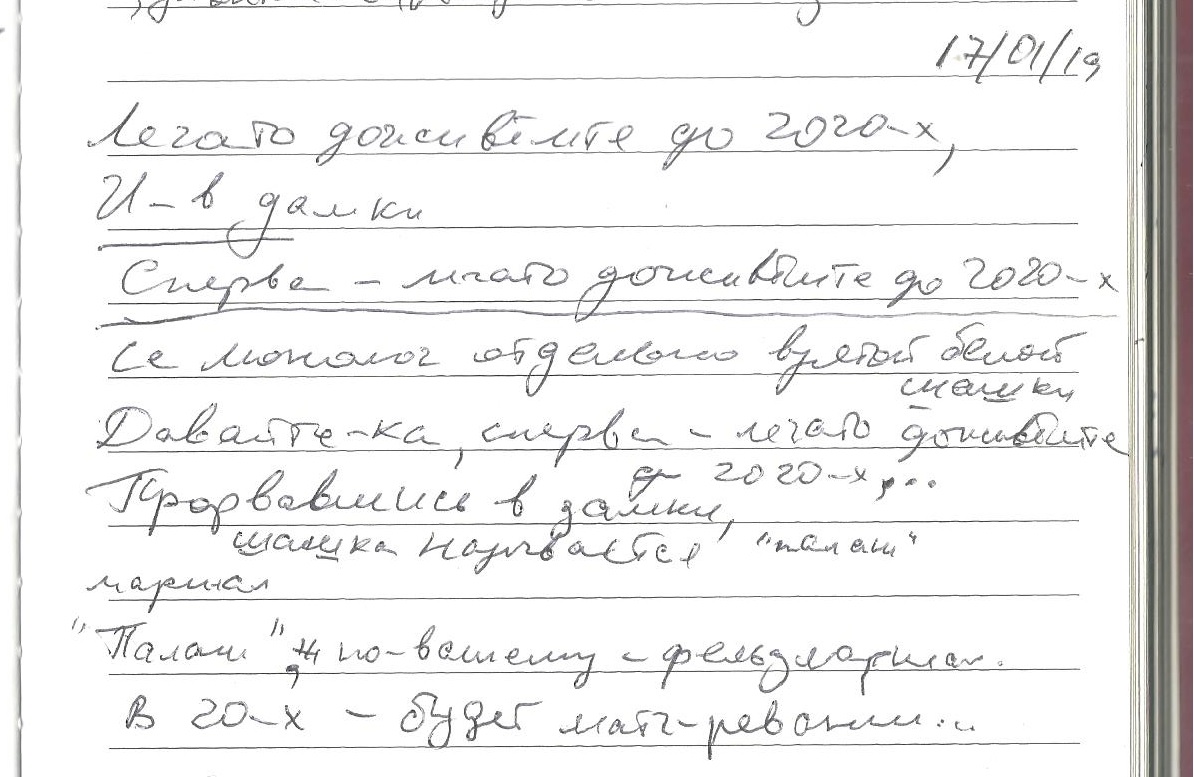 17/01/19
Легато доживёмте до 2020-х,
И - в дамки
Сперва - легато доживёмте до 2020-х
Се монолог отдельно взятой белой
шашки
Давайте-ка, сперва - легато доживёмте
до 2020-х,...
Прорвавшись в дамки,
шашка называется "палаш"
маршал
"Палаш", по-вашему - фельдмаршал.
В 20-х - будет матч-реванш...